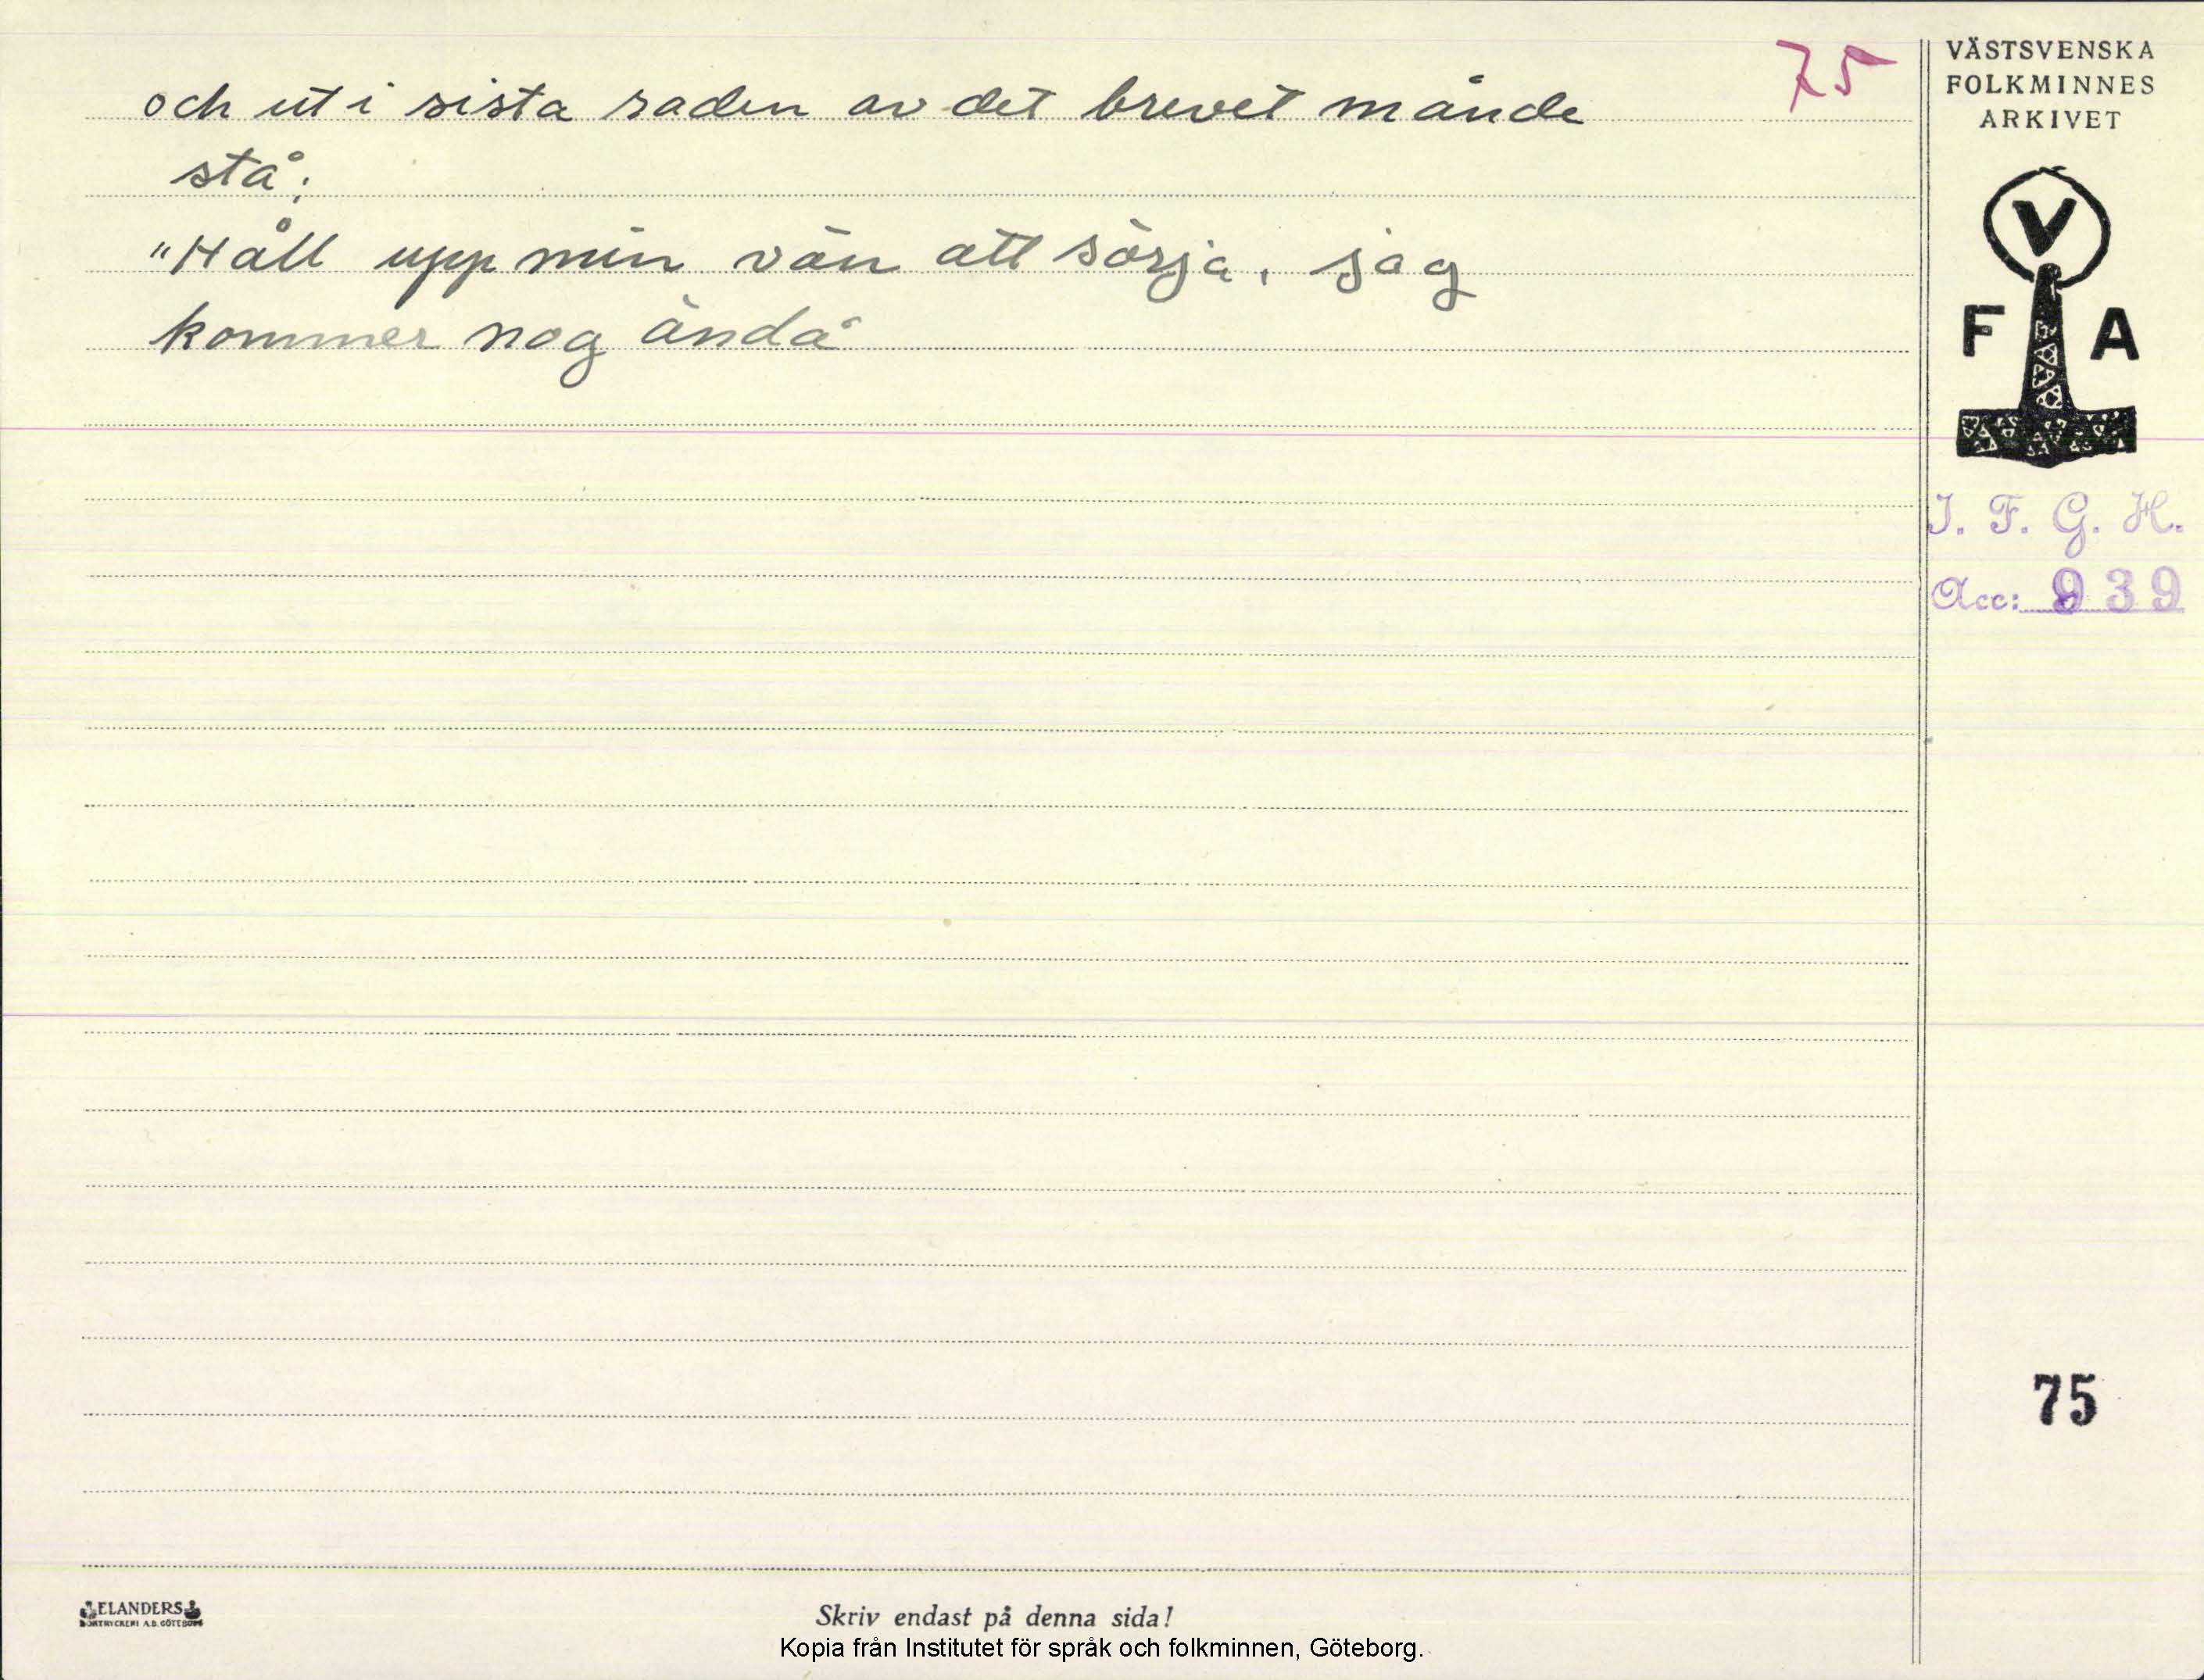 75
och ut i sista raden av det brevet månde
stå:
"Håll upp min vän att sörja, jag
kommer nog ändå"
VÄSTSVENSKA
FOLKMINNES
ARKIVET
V
F A
I. F. G. H.
Acc: 939
75
ELANDERS
BOKTRYCKERI A.B. GÖTEBORG
Skriv endast på denna sida!
Kopia från Institutet för språk och folkminnen, Göteborg.